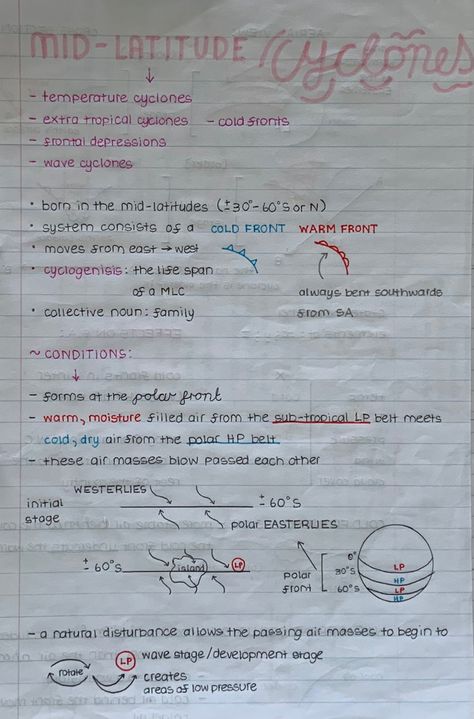 MID-LATITUDE Cyclones
- temperature cyclones
- extra tropical cyclones - cold fronts
- frontal depressions
- wave cyclones
• born in the mid-latitudes (±30°-60°S or N)
• system consists of a COLD FRONT WARM FRONT
• moves from east → west
• cyclogenisis: the life span
of a MLC
always bent southwards
• collective noun: family
from SA
~ CONDITIONS:
- forms at the polar front
- warm, moisture filled air from the sub-tropical LP belt meets
cold, dry air from the polar HP belt
- these air masses blow passed each other
WESTERLIES
initial
stage
± 60°S
polar EASTERLIES
± 60°S
island
LP
polar
front
0°
30°S
60°S
LP
HP
LP
HP
- a natural disturbance allows the passing air masses to begin to
rotate
LP wave stage/development stage
→ creates
areas of low pressure